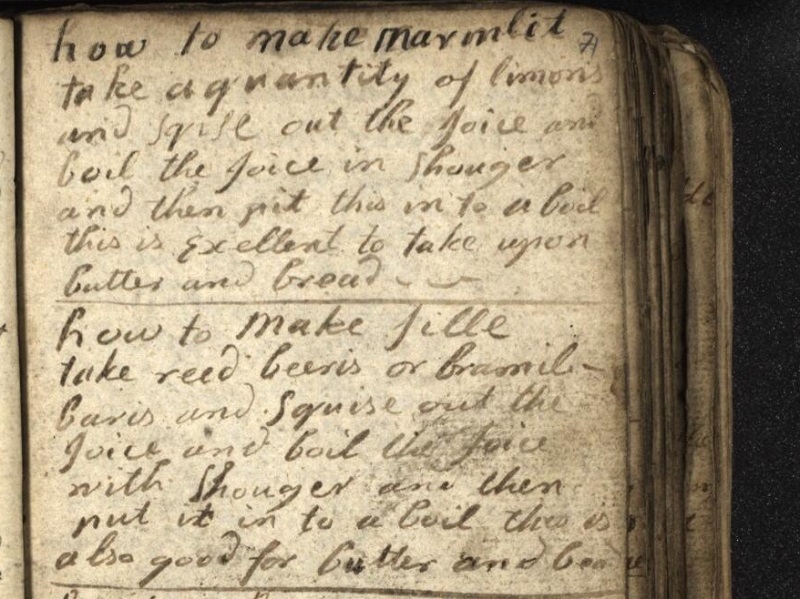 how to make marmlit 71
take a quantity of limons
and sqise out the Joice and
boil the Joice in Shouger
and then pit this in to a boil
this is Exellent to take upon
butter and bread
how to Make Jille
take reed beeris or bramil-
baris and Squise out the
Joice and boil the Joice
with Shouger and then
put it in to a boil this is
also good for butter and